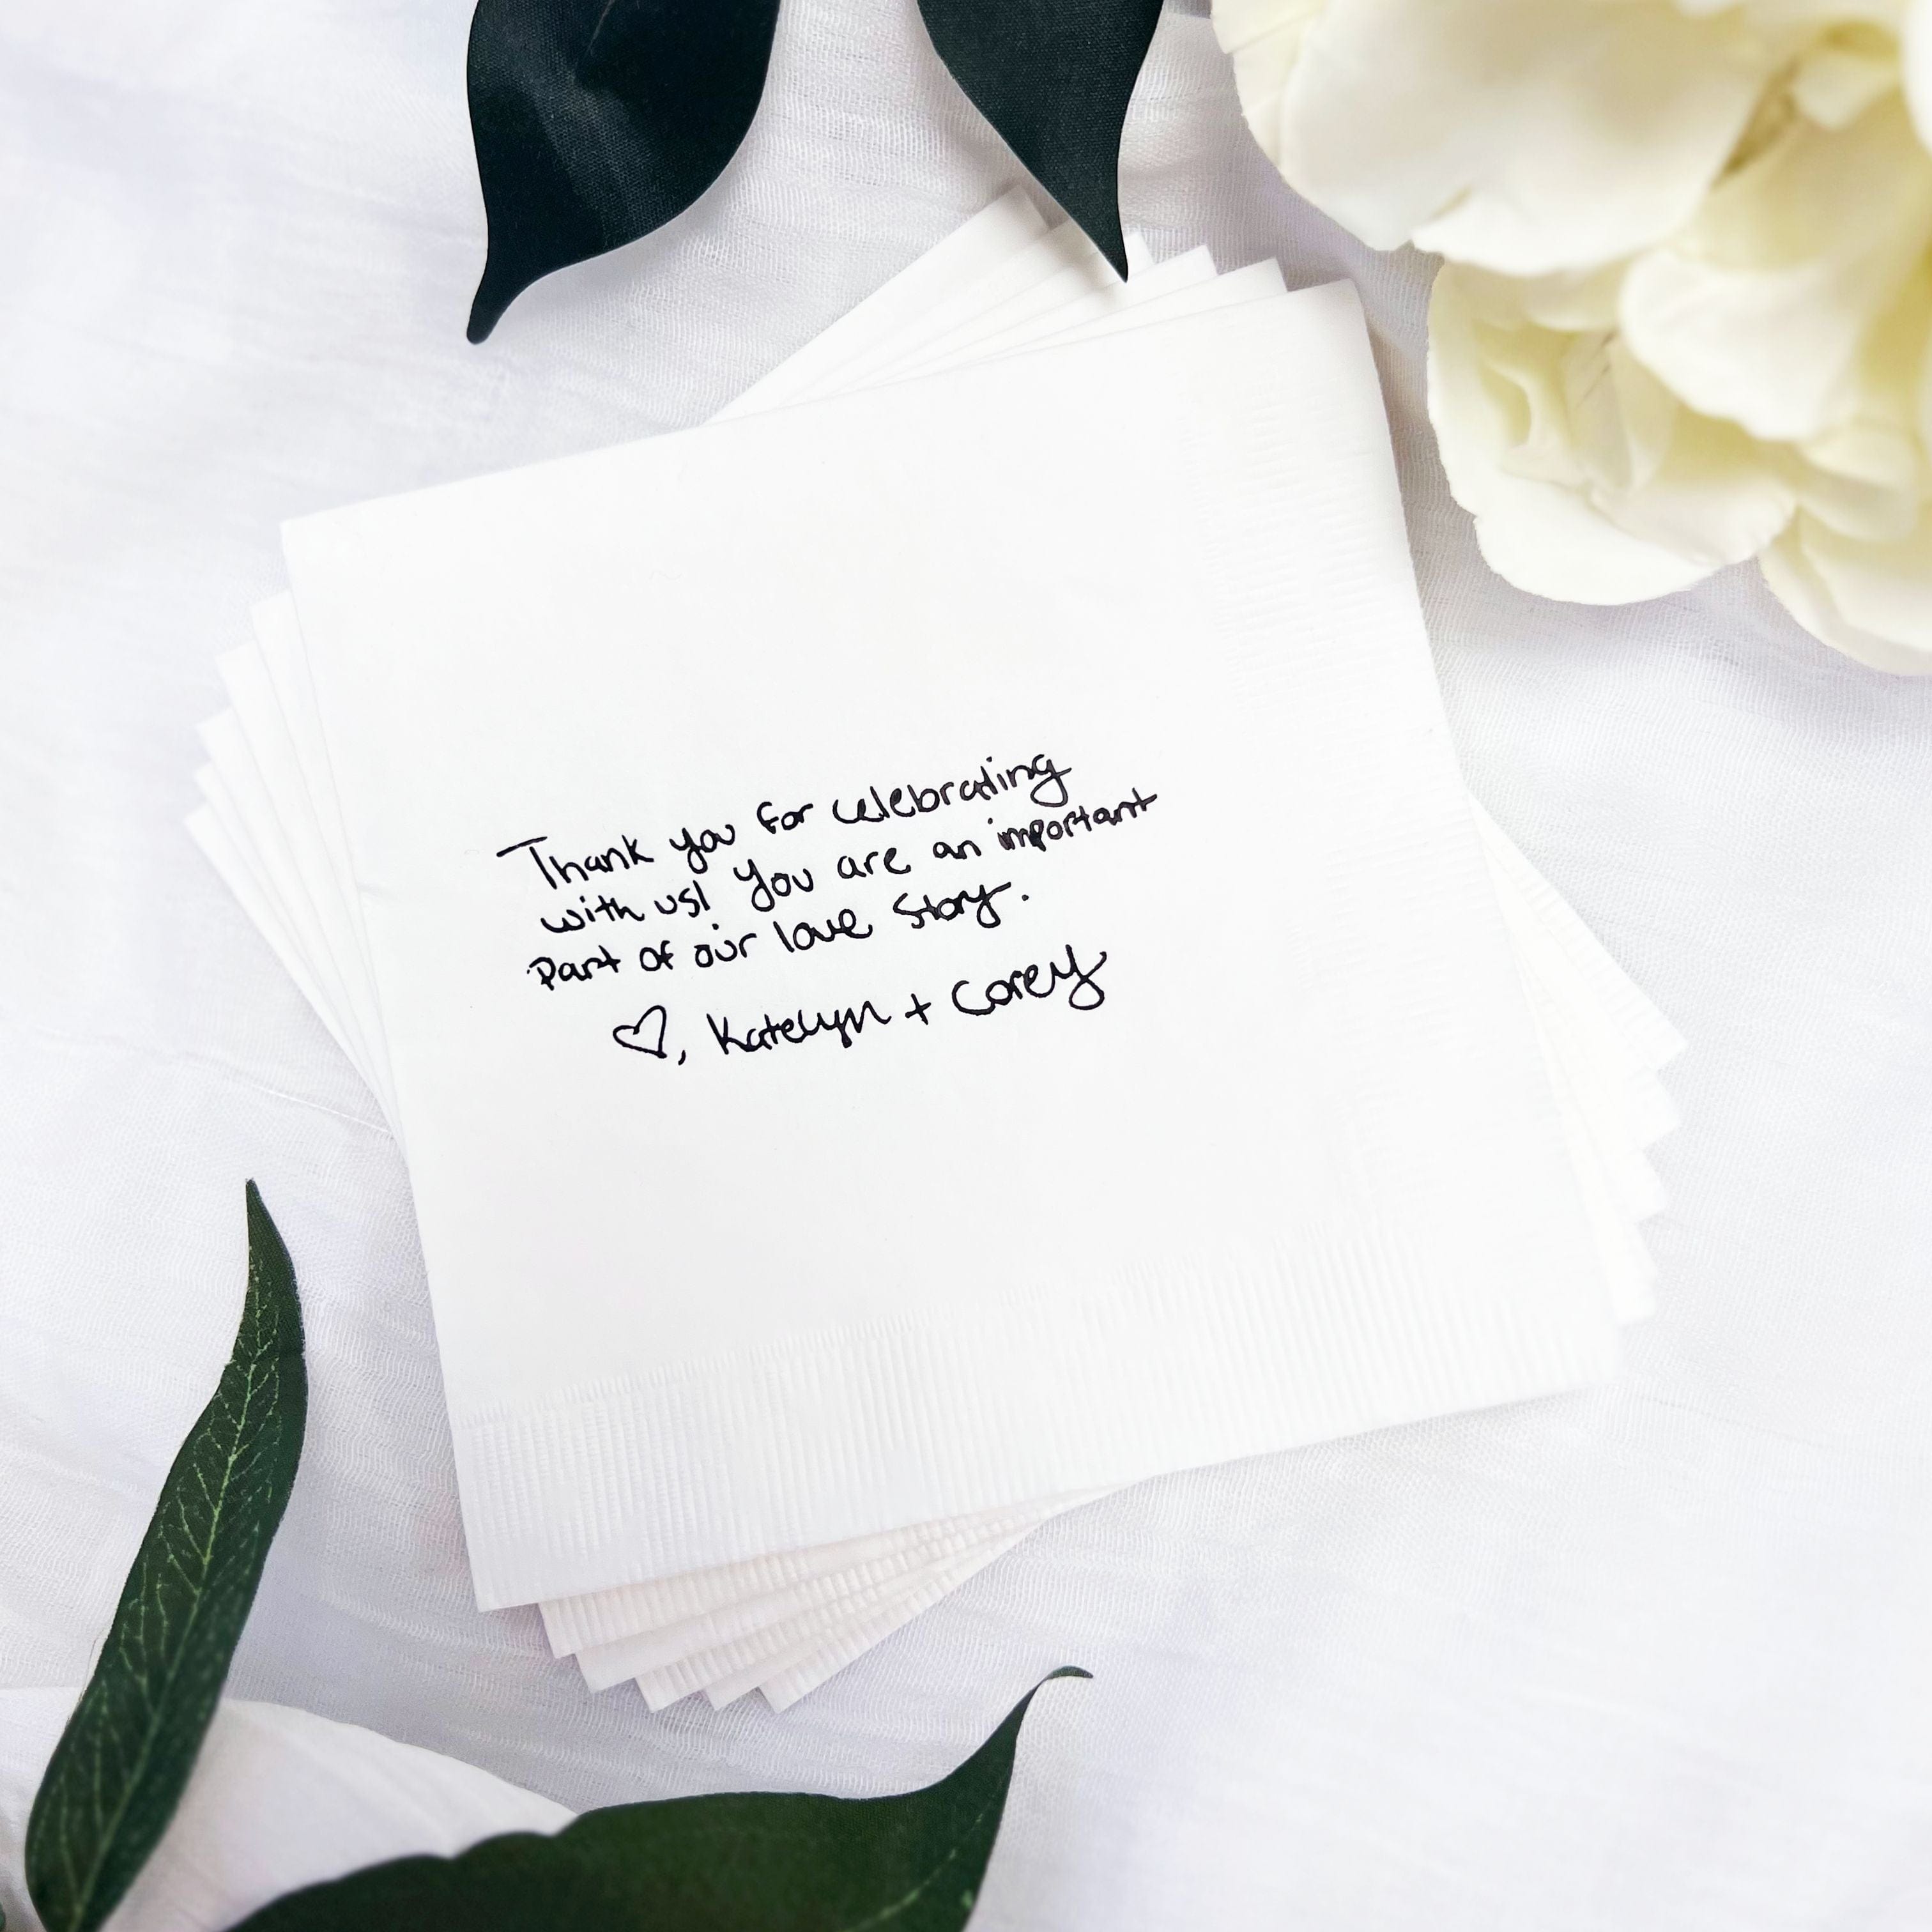 Thank you for celebrating
with us! You are an important
part of our love story.
♡, Katelyn + Corey